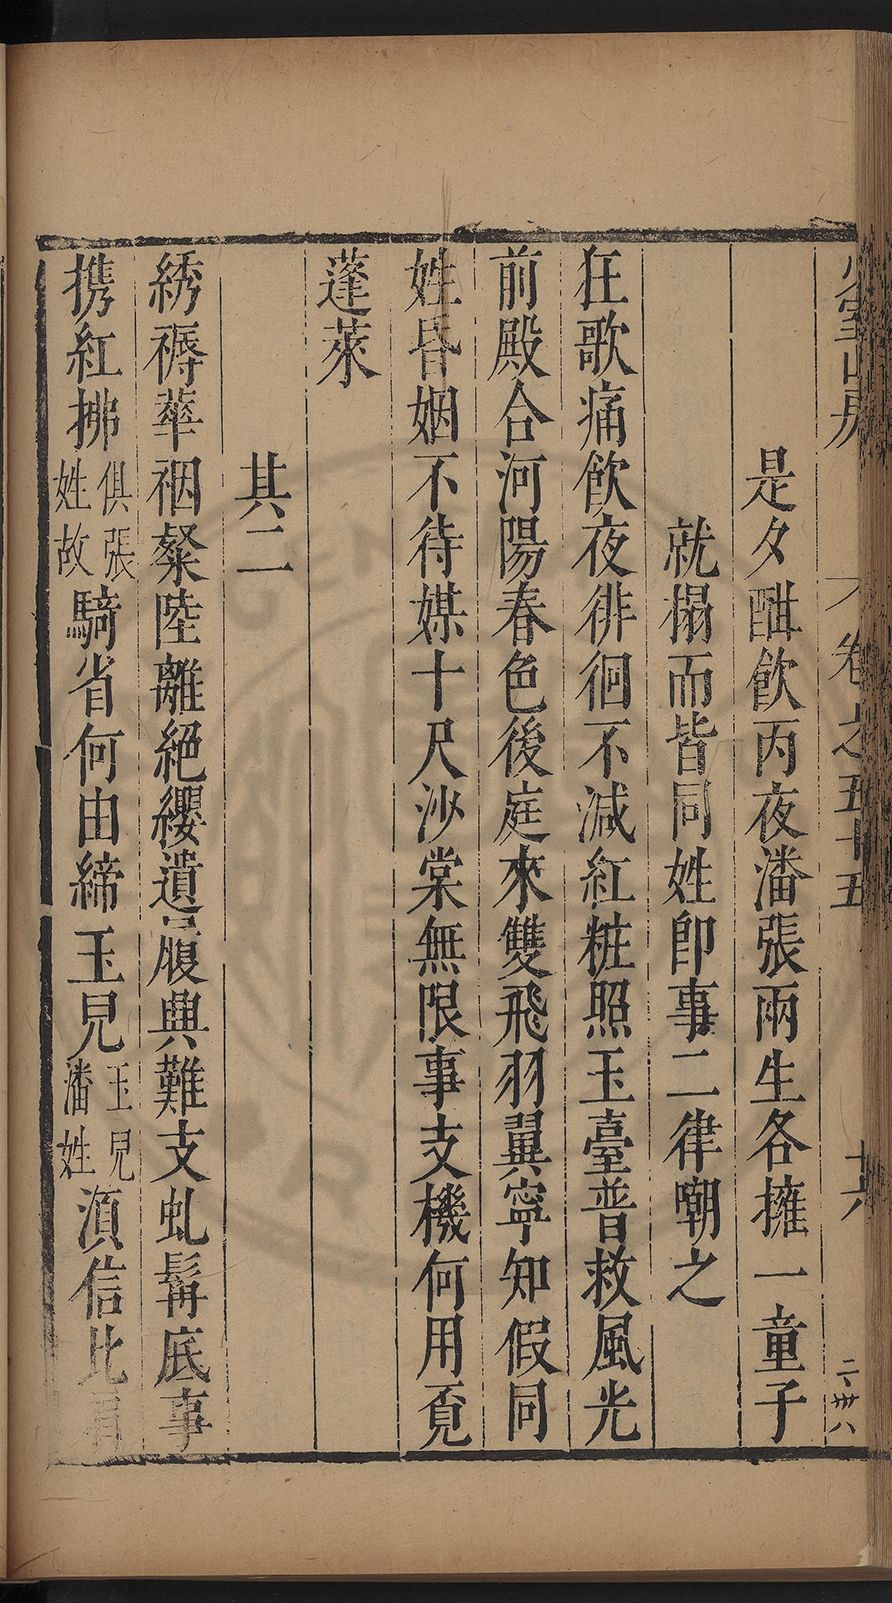 少室山房
卷之五十五
十六
二·卅八
是夕酣飲丙夜潘張兩生各擁一童子
就榻而皆同姓即事二律嘲之
狂歌痛飲夜徘徊不減紅粧照玉臺普救風光
前殿合河陽春色後庭來雙飛羽翼寧知假同
姓昏姻不待媒十尺沙棠無限事支機何用覔
蓬萊
其二
綉褥華裀粲陸離絕纓遺履興難支虬髯底事
携紅拂俱張姓故騎省何由締玉兒玉兒潘姓湏信此